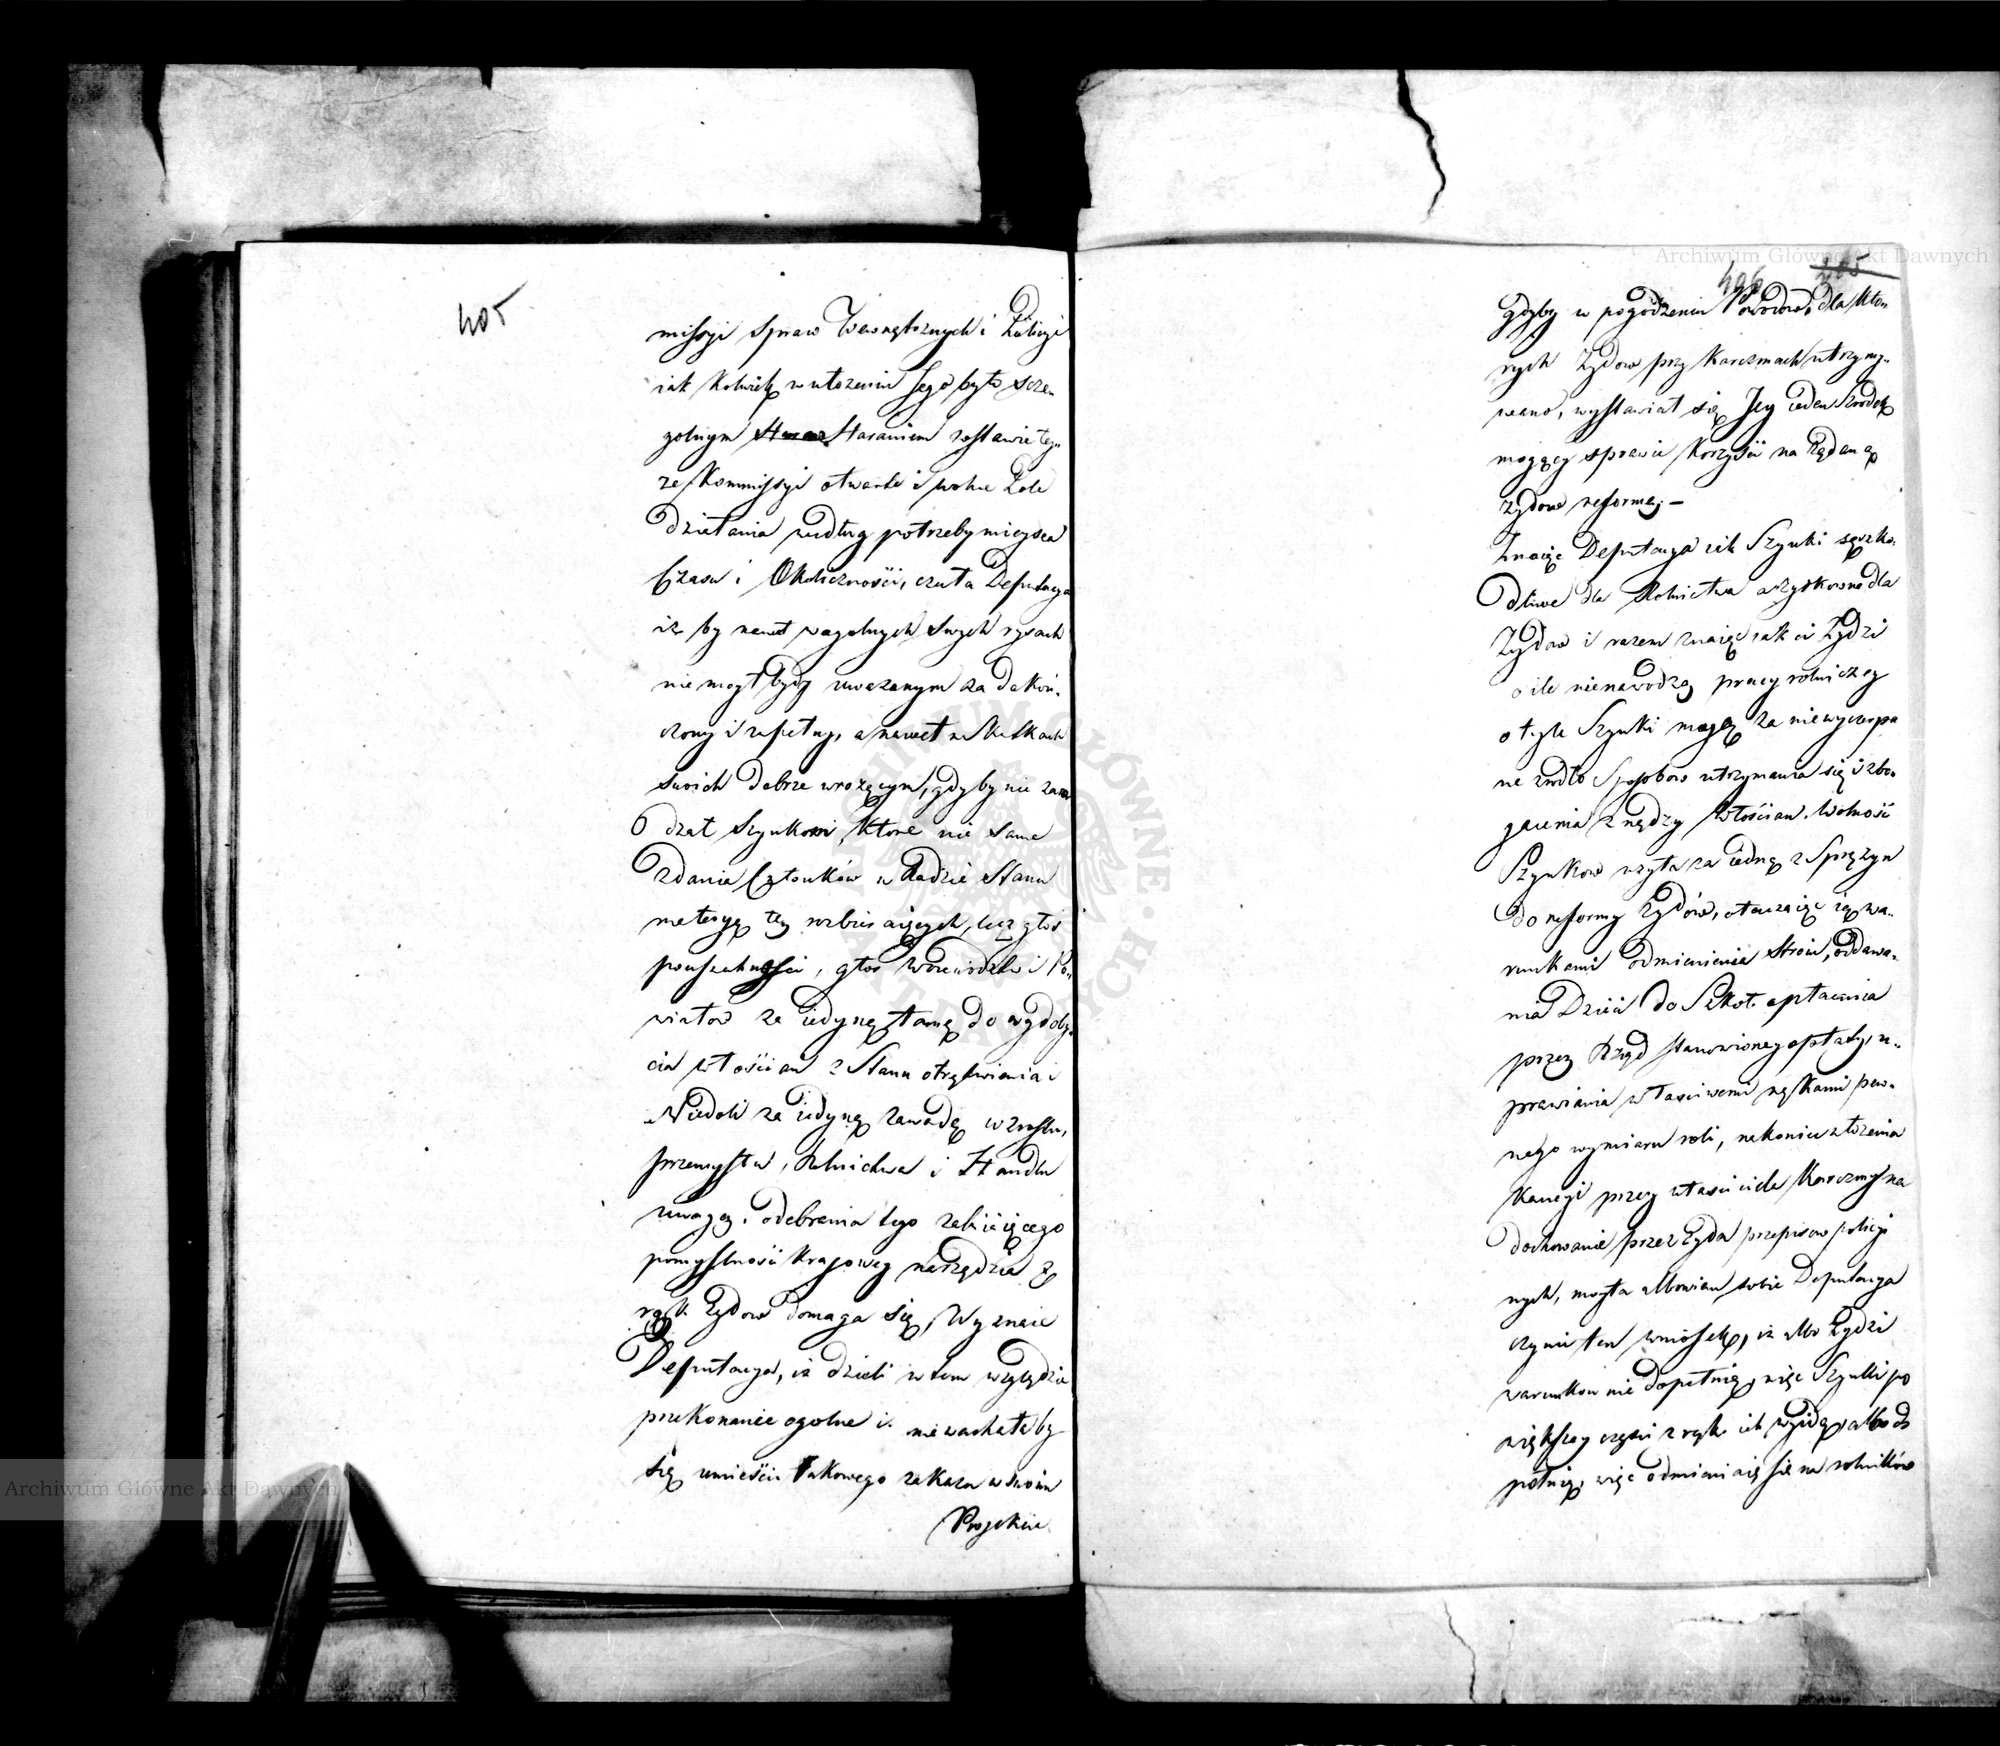 405
missyi Spraw Wewnętrznych i Policyi
iak kolwiek w ułożeniu Jego było scze-
golnym staraniem zostawić tey-
że Kommissyi otwarte i wolne Pole
działania według potrzeby mieysca
Czasu i Okoliczności, czuła Deputacya
iż by nawet w ogolnych swych rysach
nie mogł bydź uważanym za dokoń-
czony i zupełny, a nawet w skutkach
swoich dobrze wrożącym, gdyby nie zara-
dzał Szynkom, ktore nie same
Zdania Członków w Radzie Stanu
materyą tę rozbieraiących, lecz głos
powszechności, głos Woiewodztw i Po-
wiatow za iedyną tamę do wydoby-
cia włościan z Stanu otrętwienia i
Niedoli za iedyną zawadę wzrostu,
przemysłu, Rolnictwa i Handlu
uważa. odebrania tego
pomyslności kraiowey narzędzia z
rąk Żydow domaga się, Wyznaie
Deputacya, iż dzieli w tem względzie
przekonanie ogolne i niewachałaby
się umieścić takowego zakazu w swoim
Projekcie
406 205
gdyby w pogodzeniu Powodow, dla kto-
rych Żydow przy Karczmach utrzymy-
wano, wystawiał się Jey ieden srodek
mogący sprawić korzyści na żądaną
Żydow reformę. –
Znaiąc Deputacya ile Szynki są szko-
dliwe dla Rolnictwa a zyskowne dla
Żydow i razem znaiąc iak ci Żydzi
o ile nienawidzą pracy rolniczey
o tyle Szynki maią za niewyczerpa
ne zrodło Sposobow utrzymania się i zbo-
gacenia z nędzy włościan. Wolność
Szynkow użyta za iedną z Sprężyn
do reformy Żydów, otaczaiąc ią wa-
runkami odmienienia Stroiu, oddawa-
nia Dzieci do Szkoł. opłacania
przez Rząd stanowioney opłaty, u-
prawiania własciwemi rękami pew-
nego wymiaru roli, nakoniec złożenia
kaucyi przez własciciela Karczmy na
dochowanie przez Żyda przepisow policyi
nych, mogła albowiem sobie Deputacya
czynić ten wniosek, iż albo Żydzi
warunkow nie dopełnią, więc Szynki po
większey częsci z rąk ich wyidą, albo do
pełnią, więc odmieniaią się na rolników